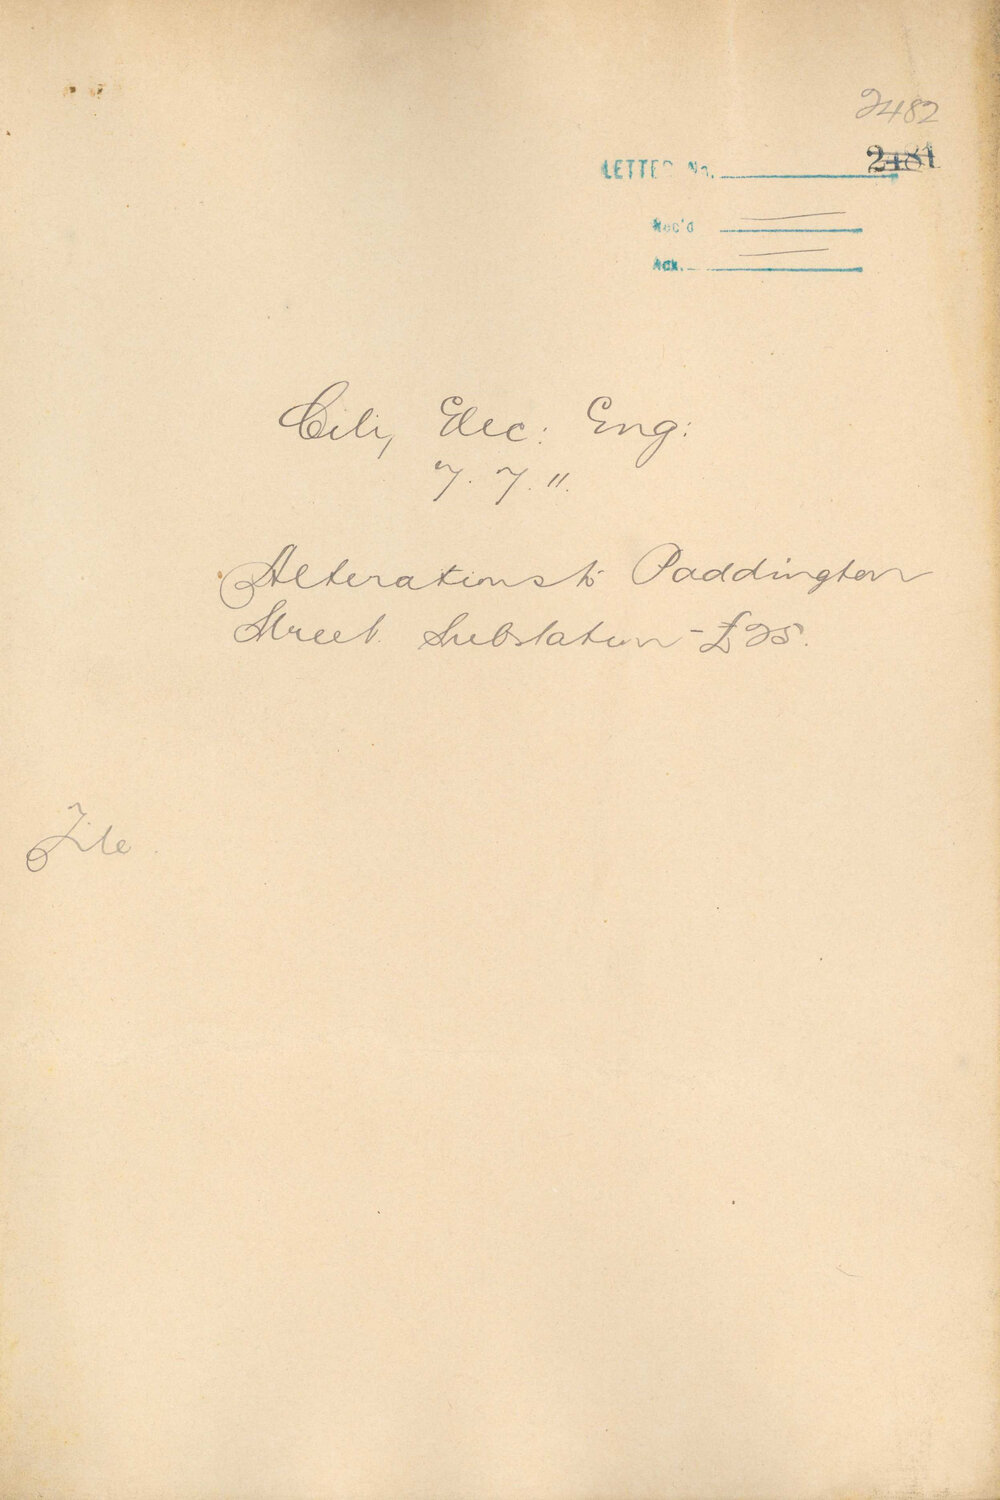 2482
LETTER No. 2481
Rec'd
Ack.
City Elec: Eng:
7. 7. 11.
Alterations to Paddington
Street Substation - £25.
File